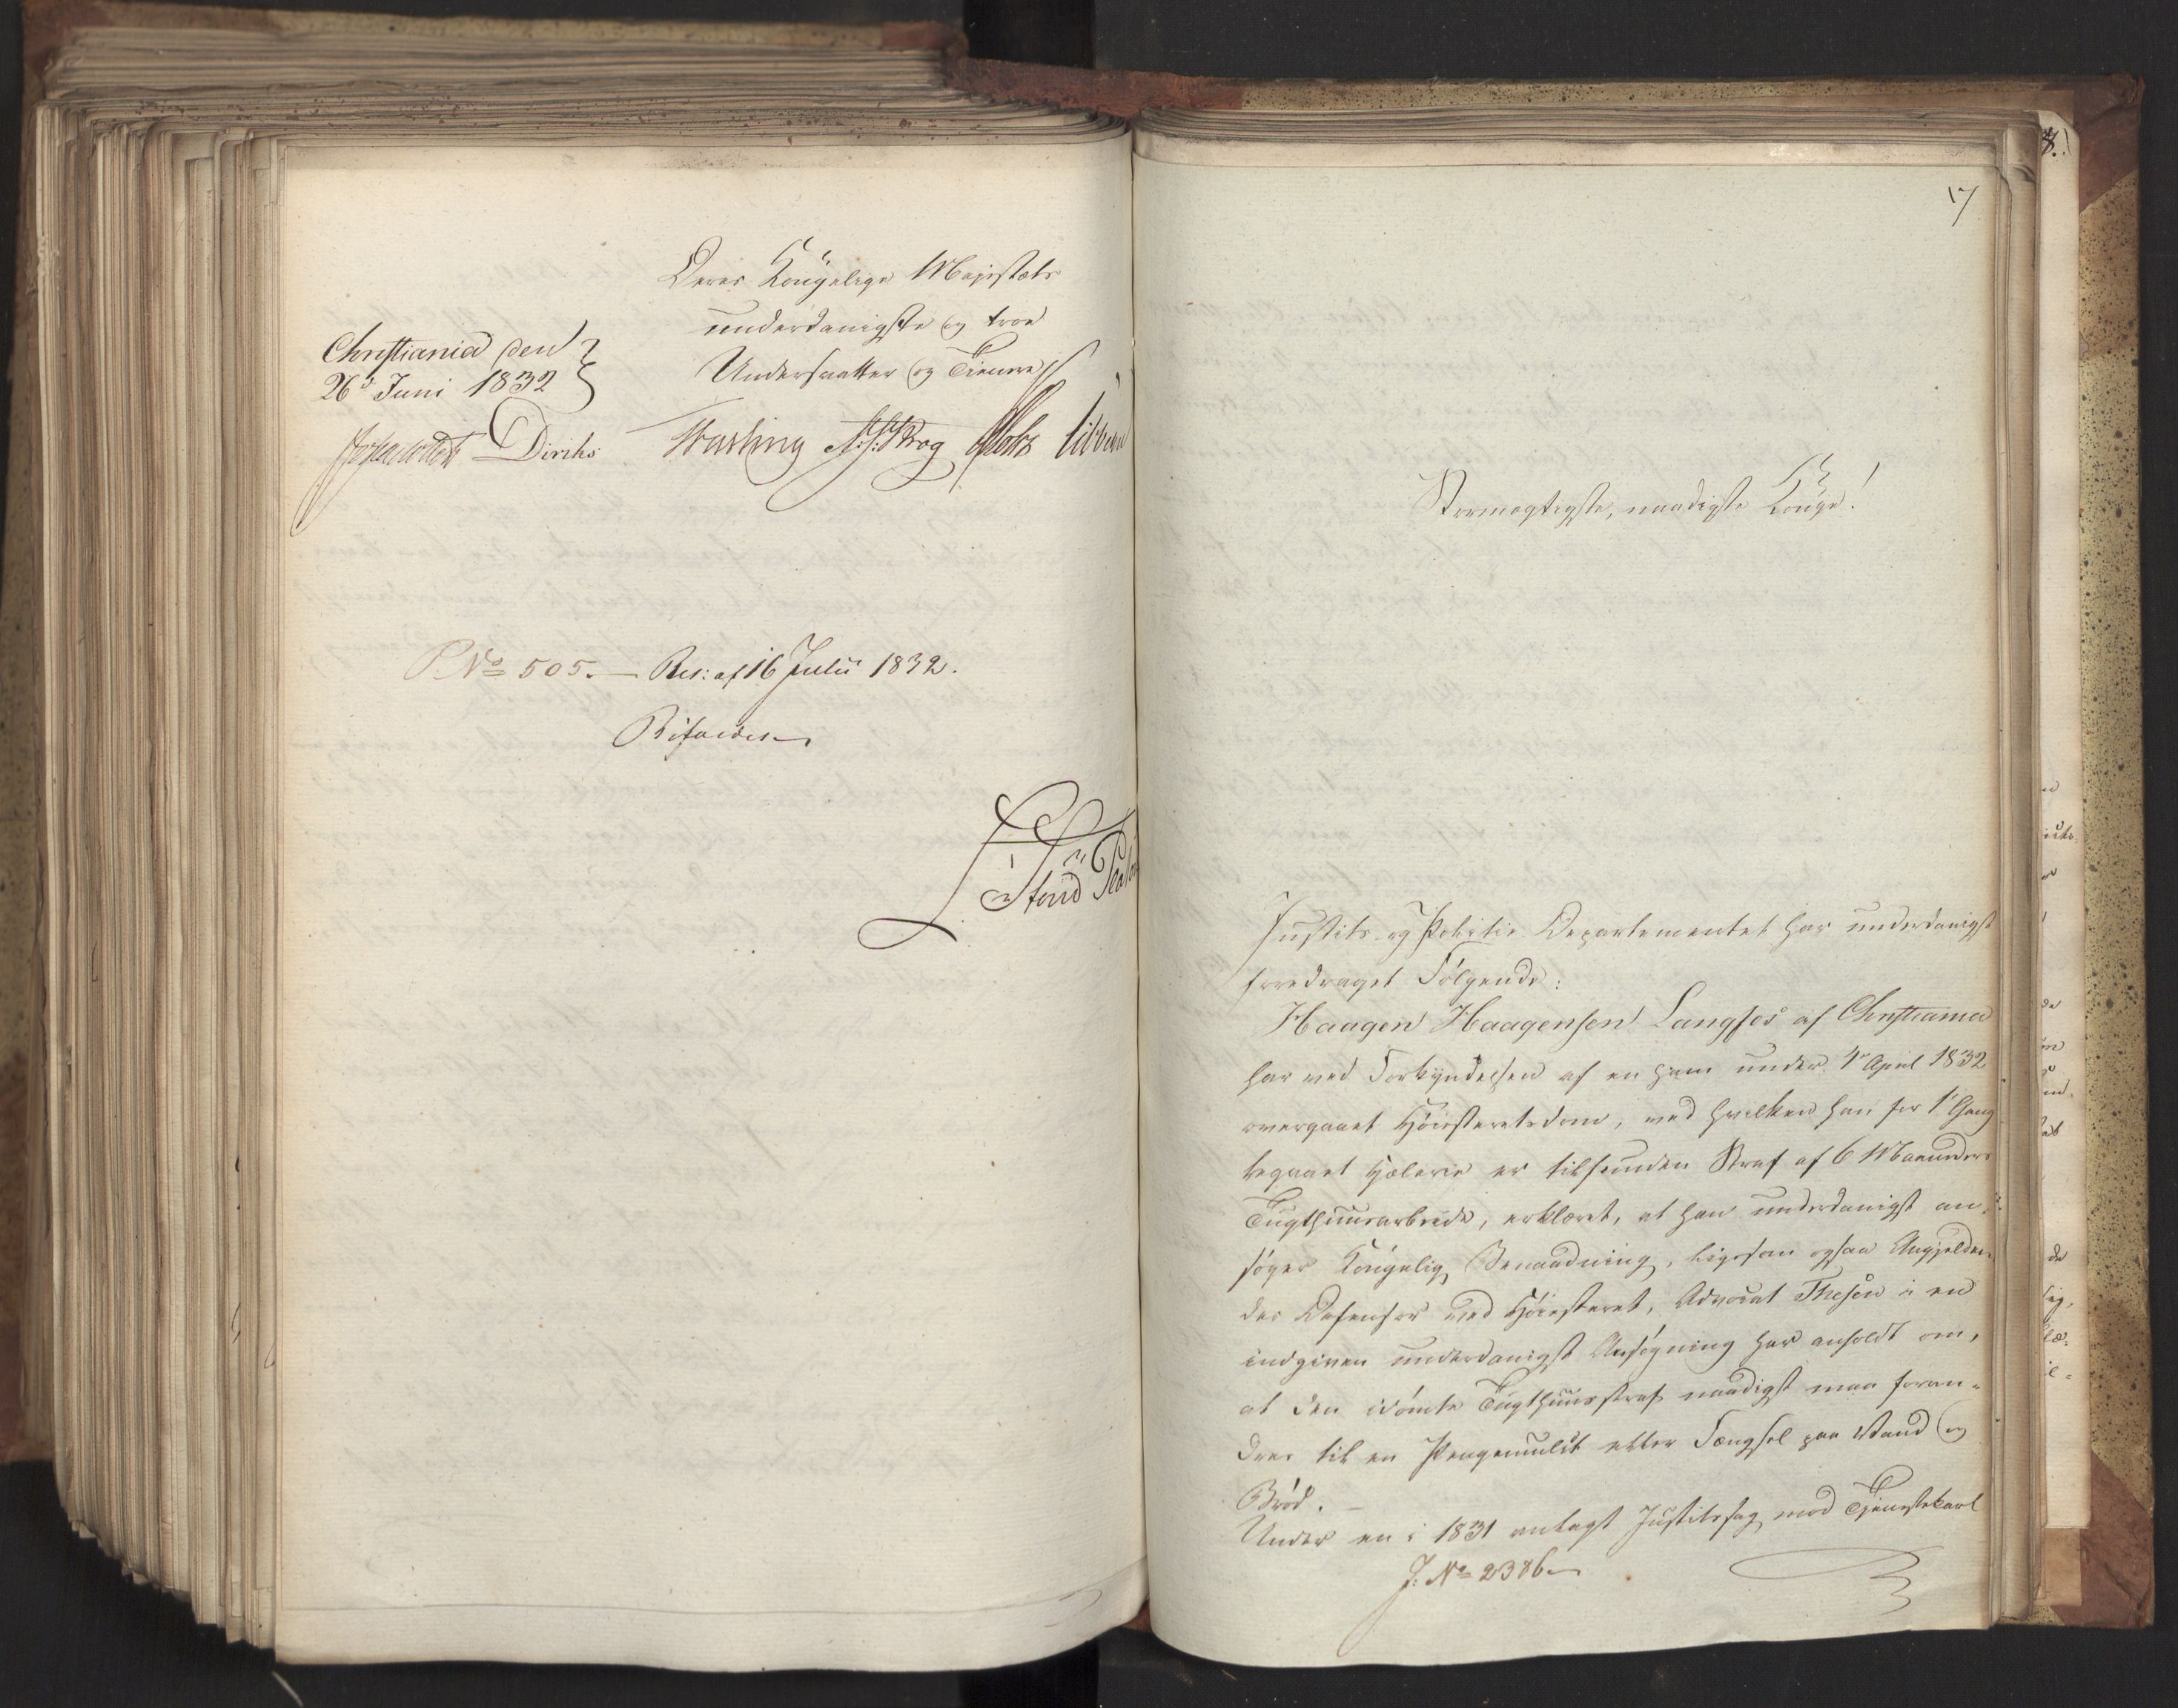 Deres Kongelige Majestæts
underdanigste og troe
Undersaatter og Tienere
Christiania den
26d Juni 1832
Diriks Krog Motz
P No 505. — Res: af 16 Julii 1832.
Bifaldes
17
Stormægtigste, naadigste Konge!
Justits- og Politie Departementet har underdanigst
foredraget Følgende:
Haagen Haagensen Langsos af Christiania
har ved Forkyndelsen af en ham under 4de April 1832
overgaaet Høiesteretsdom, ved hvilken han for 1ste Gang
begaaet Hæleri er tilfunden Straf af 6 Maaneders
Tugthuusarbeide, erklæret, at han underdanigst an-
søger Kongelig Benaadning, ligesom ogsaa Angjelden-
des Defensor ved Høiesteret, Advocat Thesen i en
indgiven underdanigst Ansøgning har anholdt om,
at den idømte Tugthuusstraf naadigst maa foran-
dres til en Pengemulct eller Fængsel paa Vand og
Brød. —
Under en i 1831 anlagt Justitssag mod Tjenestekarl
J: No 2386